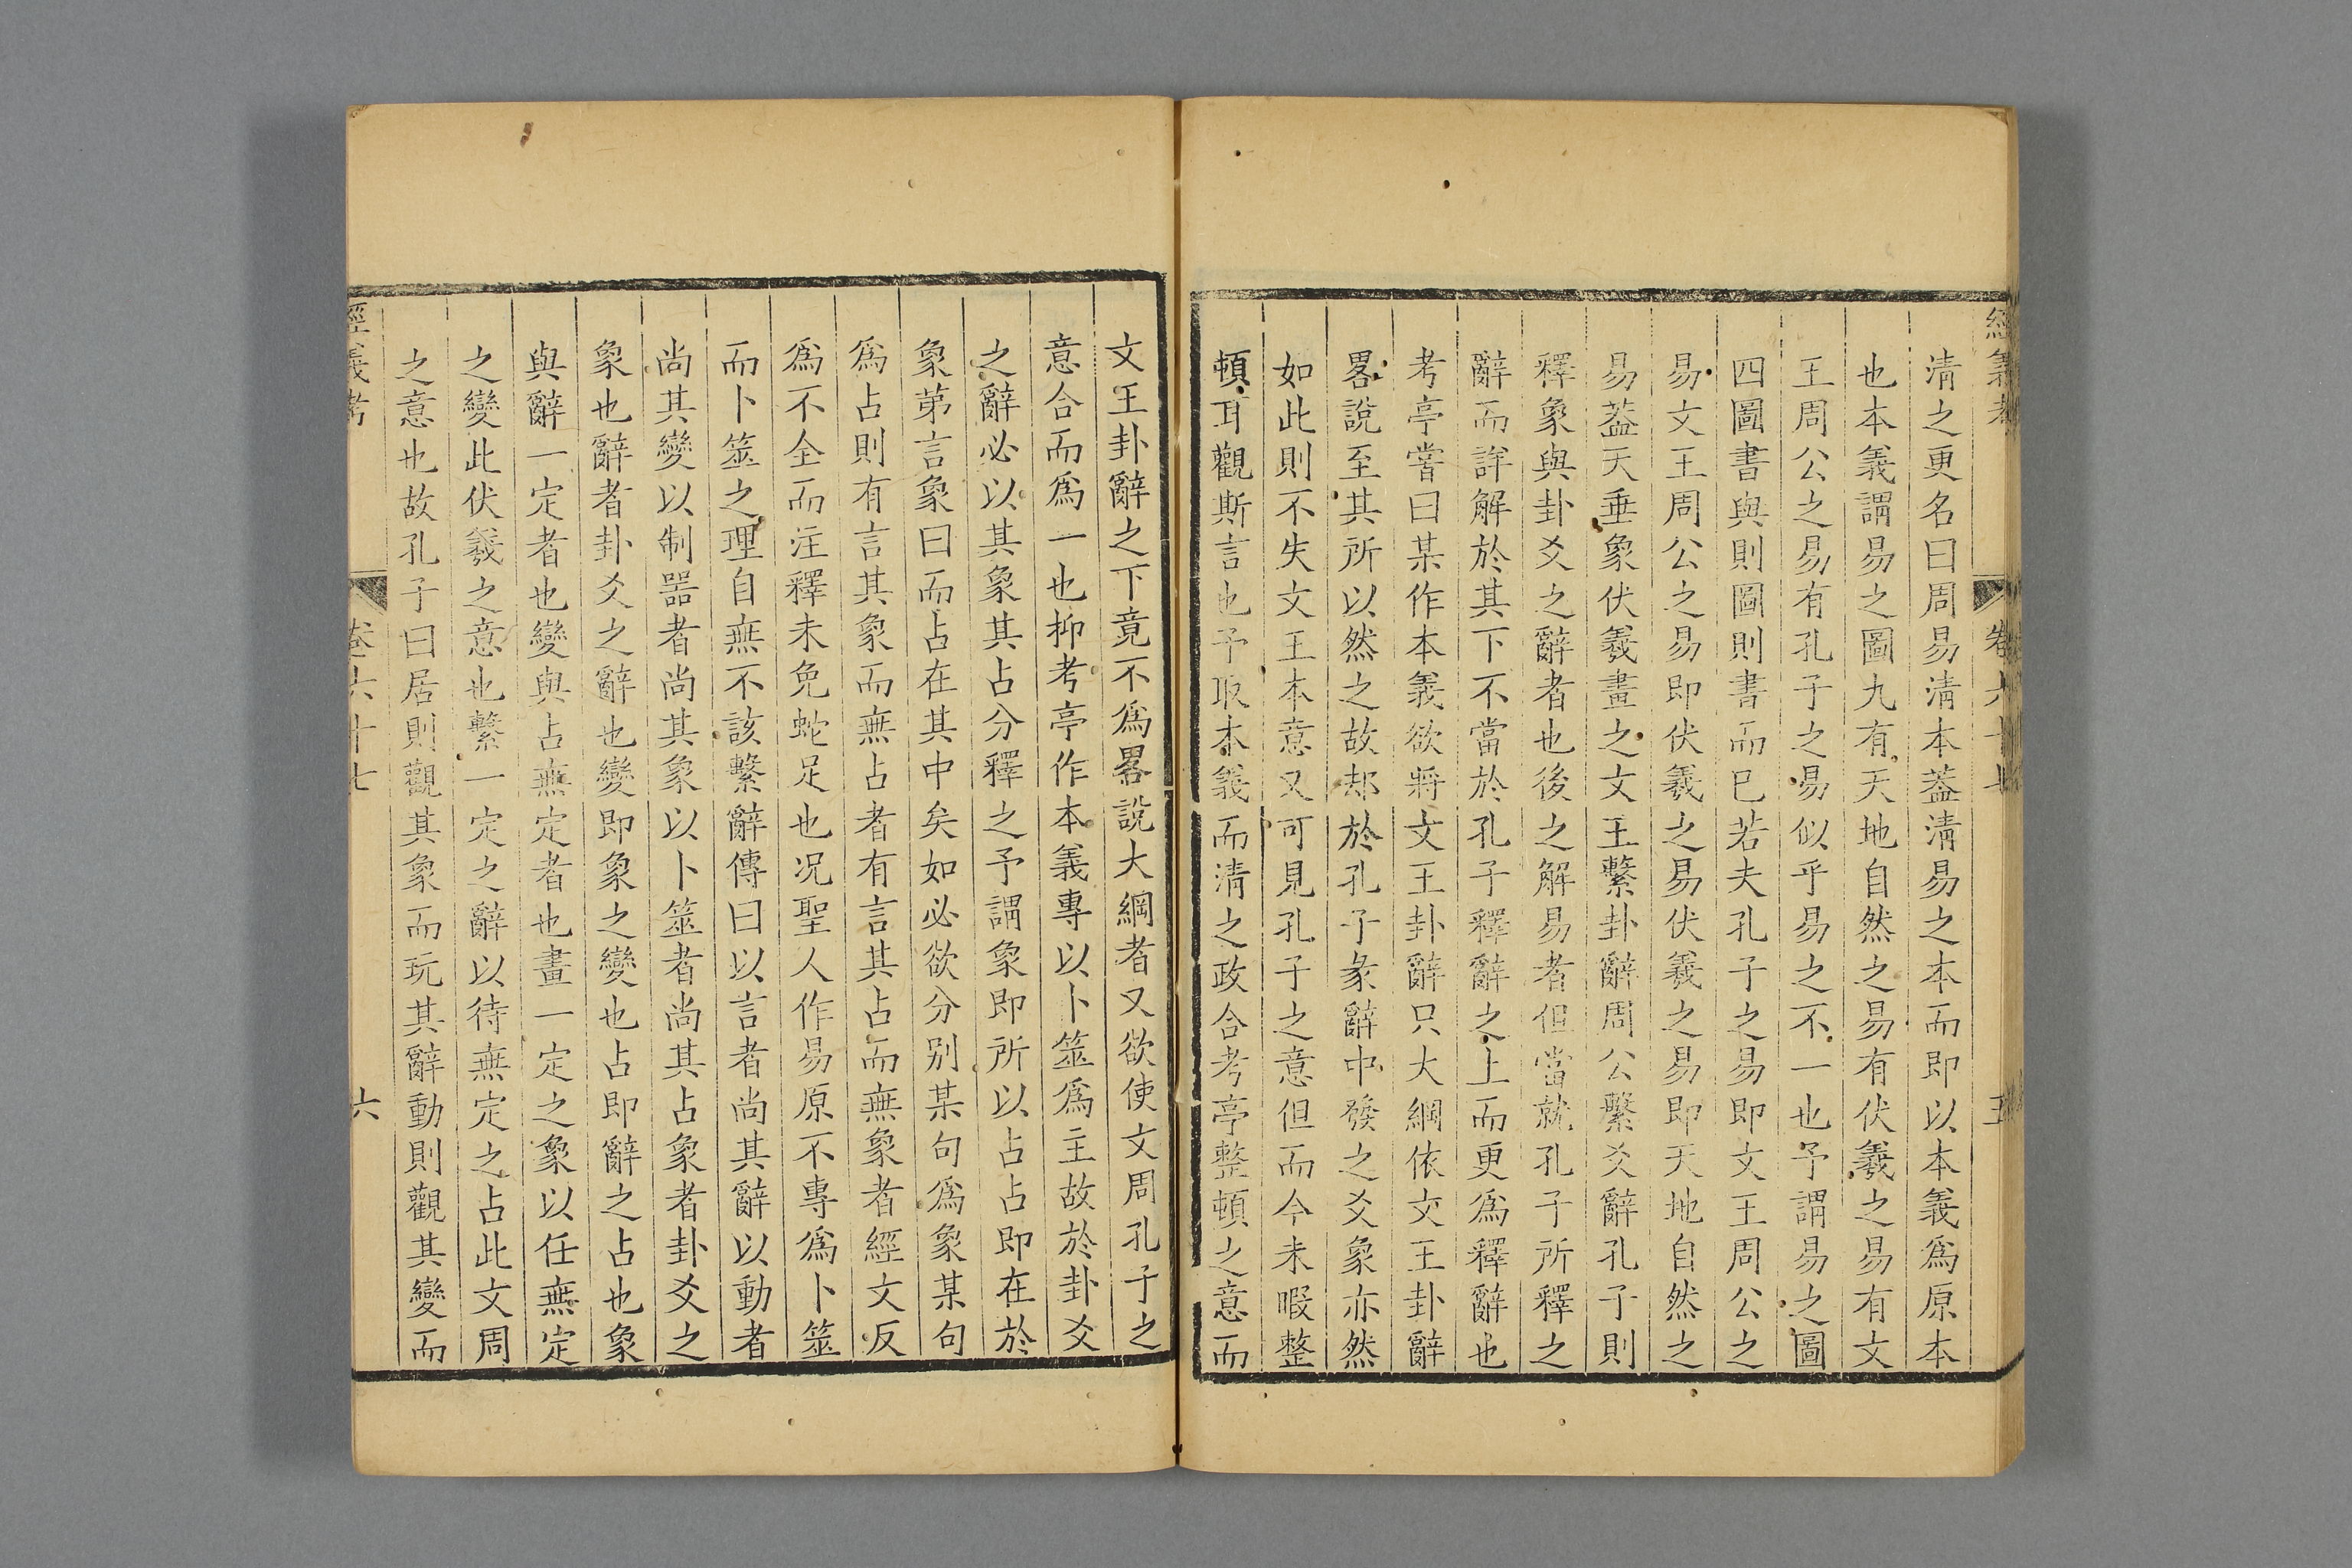 經義考 卷六十七 五
清之更名曰周易淸本葢淸易之本而即以本義爲原本
也本義謂易之圖九有天地自然之易有伏羲之易有文
王周公之易有孔子之易似乎易之不一也予謂易之圖
四圖書與則圖則書而已若夫孔子之易即文王周公之
易文王周公之易即伏羲之易伏羲之易即天地自然之
易葢天垂象伏羲畫之文王繫卦辭周公繫爻辭孔子則
釋象與卦爻之辭者也後之解易者但當就孔子所釋之
辭而詳解於其下不當於孔子釋辭之上而更爲釋辭也
考亭嘗曰某作本義欲將文王卦辭只大綱依文王卦辭
畧說至其所以然之故却於孔子彖辭中發之爻象亦然
如此則不失文王本意又可見孔子之意但而今未暇整
頓耳觀斯言也予取本義而淸之政合考亭整頓之意而
文王卦辭之下竟不爲畧說大綱者又欲使文周孔子之
意合而爲一也抑考亭作本義專以卜筮爲主故於卦爻
之辭必以其象其占分釋之予謂象即所以占占即在於
象第言象曰而占在其中矣如必欲分别某句爲象某句
爲占則有言其象而無占者有言其占而無象者經文反
爲不全而注釋未免蛇足也况聖人作易原不專爲卜筮
而卜筮之理自無不該繫辭傳曰以言者尚其辭以動者
尚其變以制噐者尚其象以卜筮者尚其占象者卦爻之
象也辭者卦爻之辭也變即象之變也占即辭之占也象
與辭一定者也變與占無定者也畫一定之象以任無定
之變此伏羲之意也繫一定之辭以待無定之占此文周
之意也故孔子曰居則觀其象而玩其辭動則觀其變而
經義考 卷六十七 六